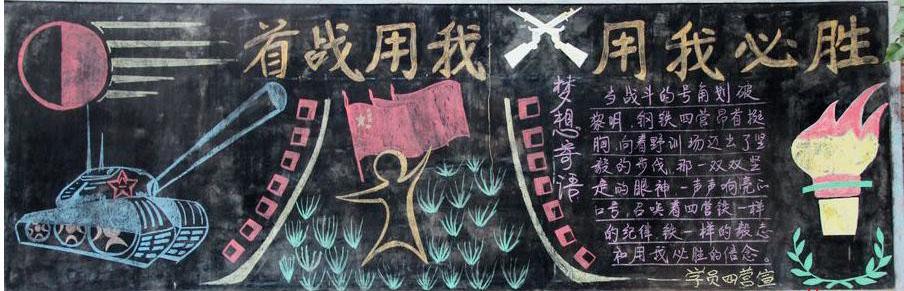 首战用我 用我必胜
梦想寄语
当战斗的号角划破
黎明,钢铁四营昂首挺
胸,向着野训场迈出了坚
毅的步伐,那一双双坚
定的眼神,一声声响亮的
口号,召唤着四营铁一样
的纪律 铁一样的毅志
和用我必胜的信念。
学员四营宣